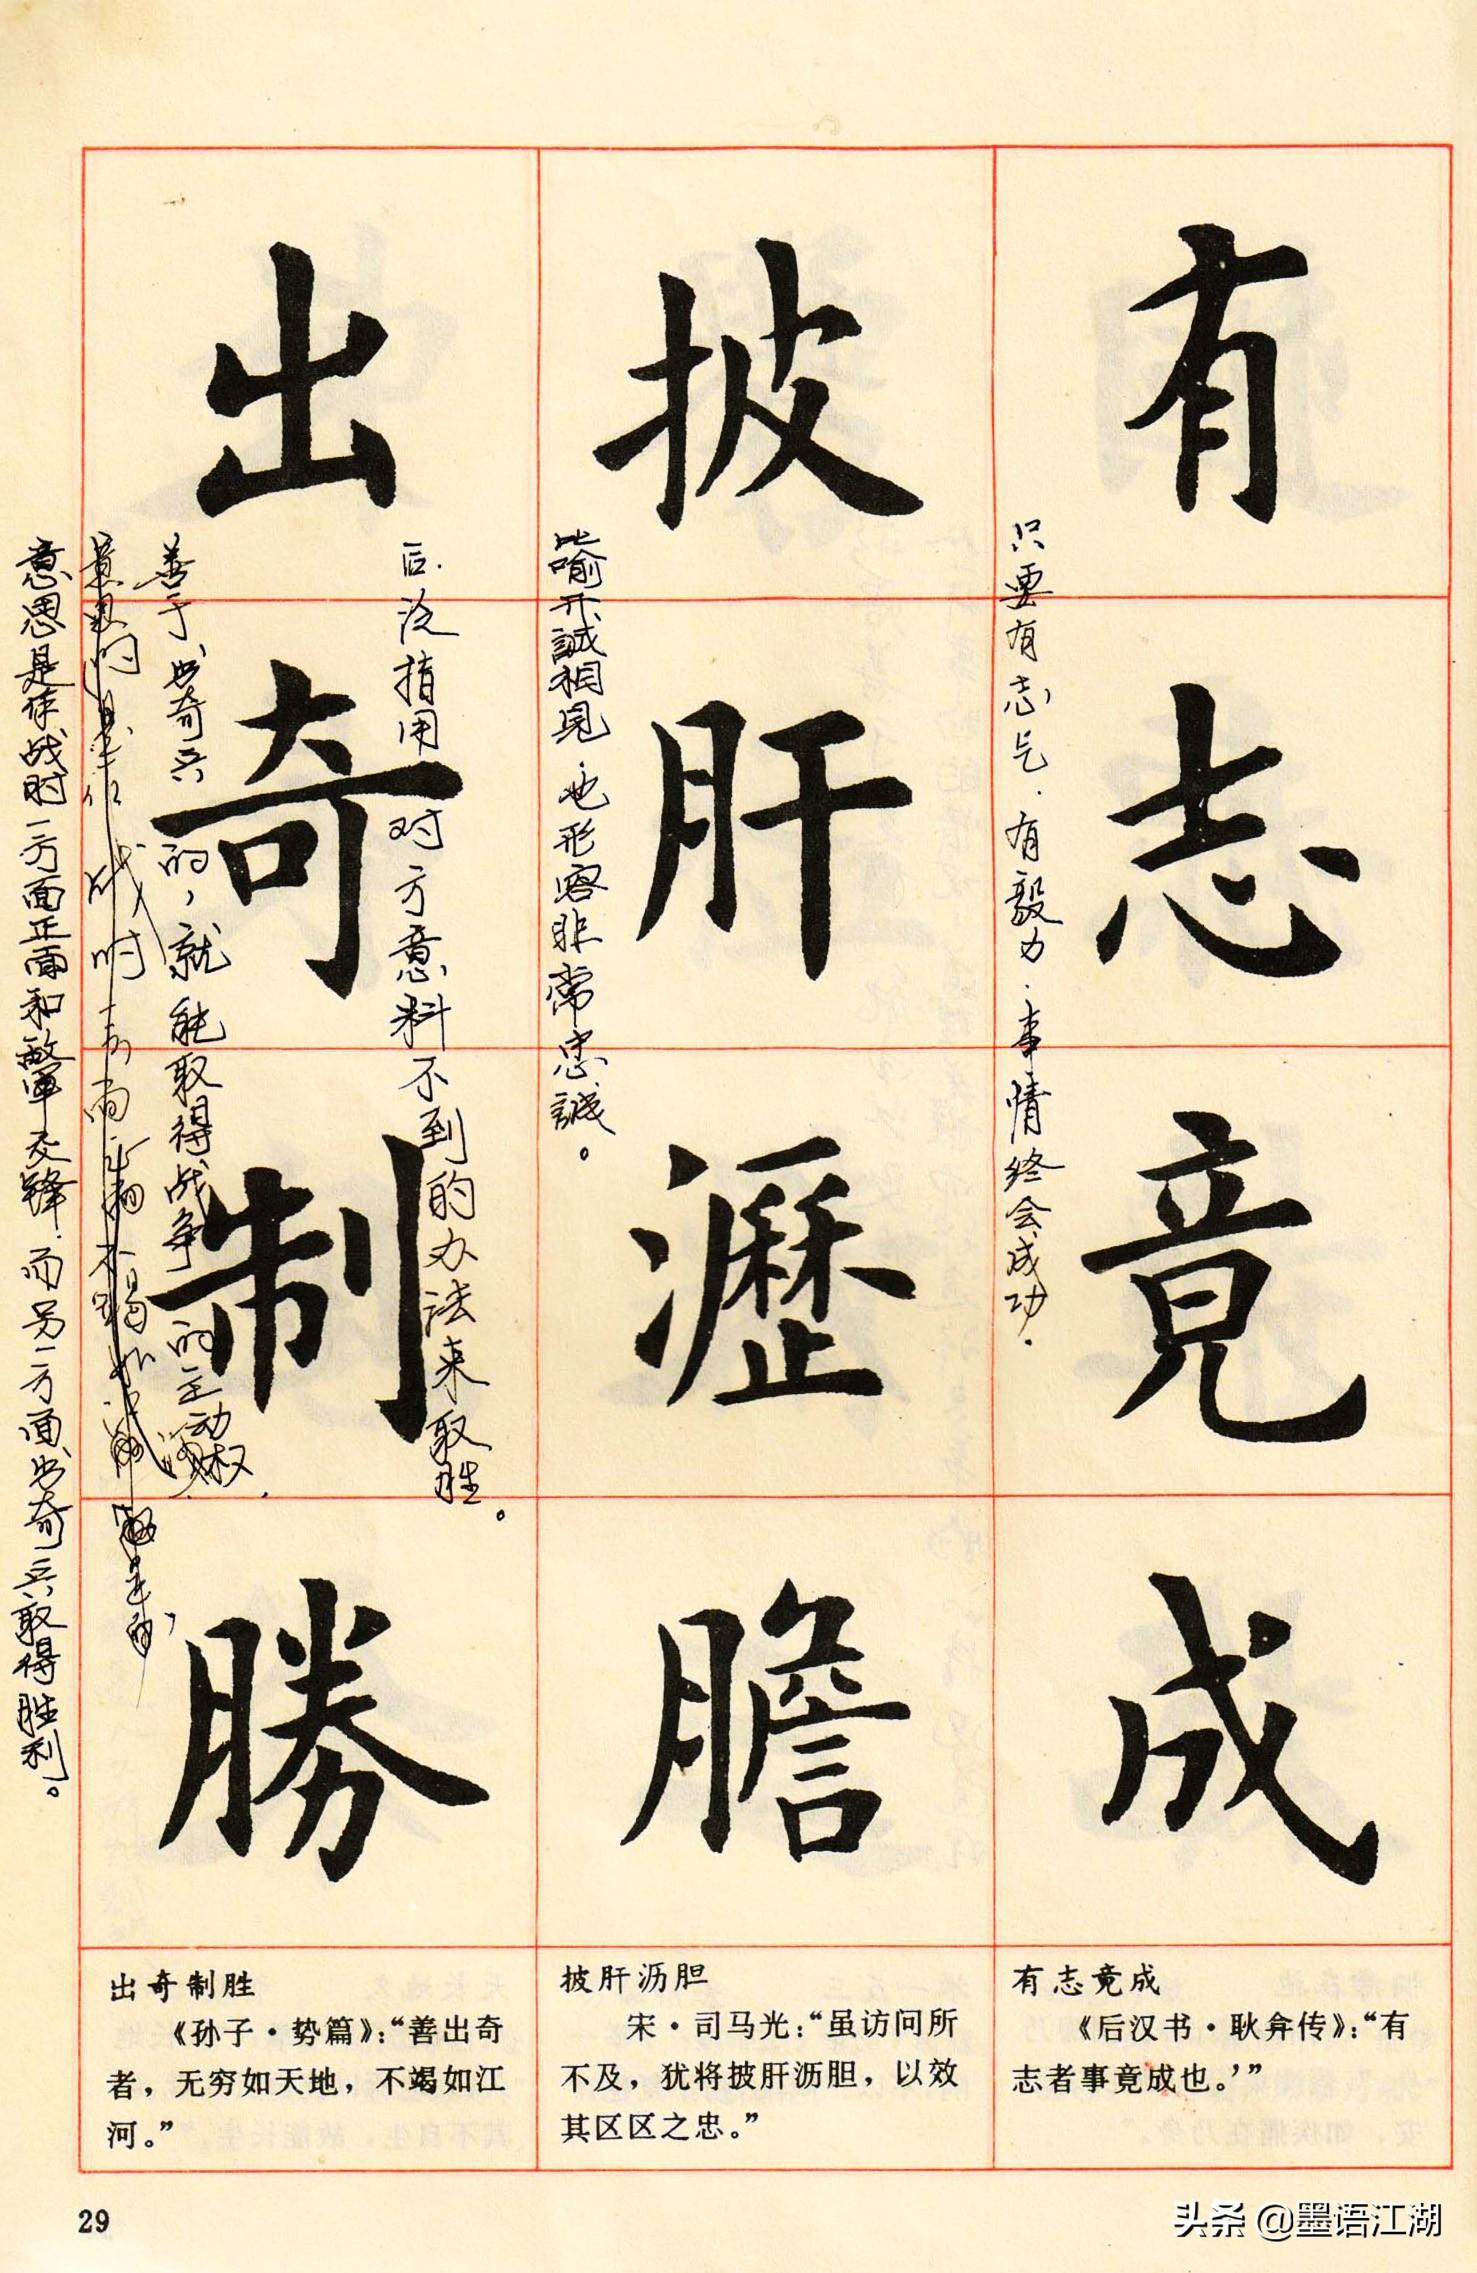 有志竟成
只要有志气.有毅力.事情终会成功.
披肝瀝膽
比喻开誠相见.也形容非常忠誠。
出奇制勝
后.泛指用对方意料不到的办法来取胜。
善于出奇兵的,就能取得战争的主动权.
意思是作战时一方面正面和敌军交锋.而另一方面出奇兵取得胜利。
出奇制胜
《孙子·势篇》：“善出奇
者，无穷如天地，不竭如江
河。”
披肝沥胆
宋·司马光：“虽访问所
不及，犹将披肝沥胆，以效
其区区之忠。”
有志竟成
《后汉书·耿弇传》：“有
志者事竟成也。’”
29
头条 @墨语江湖